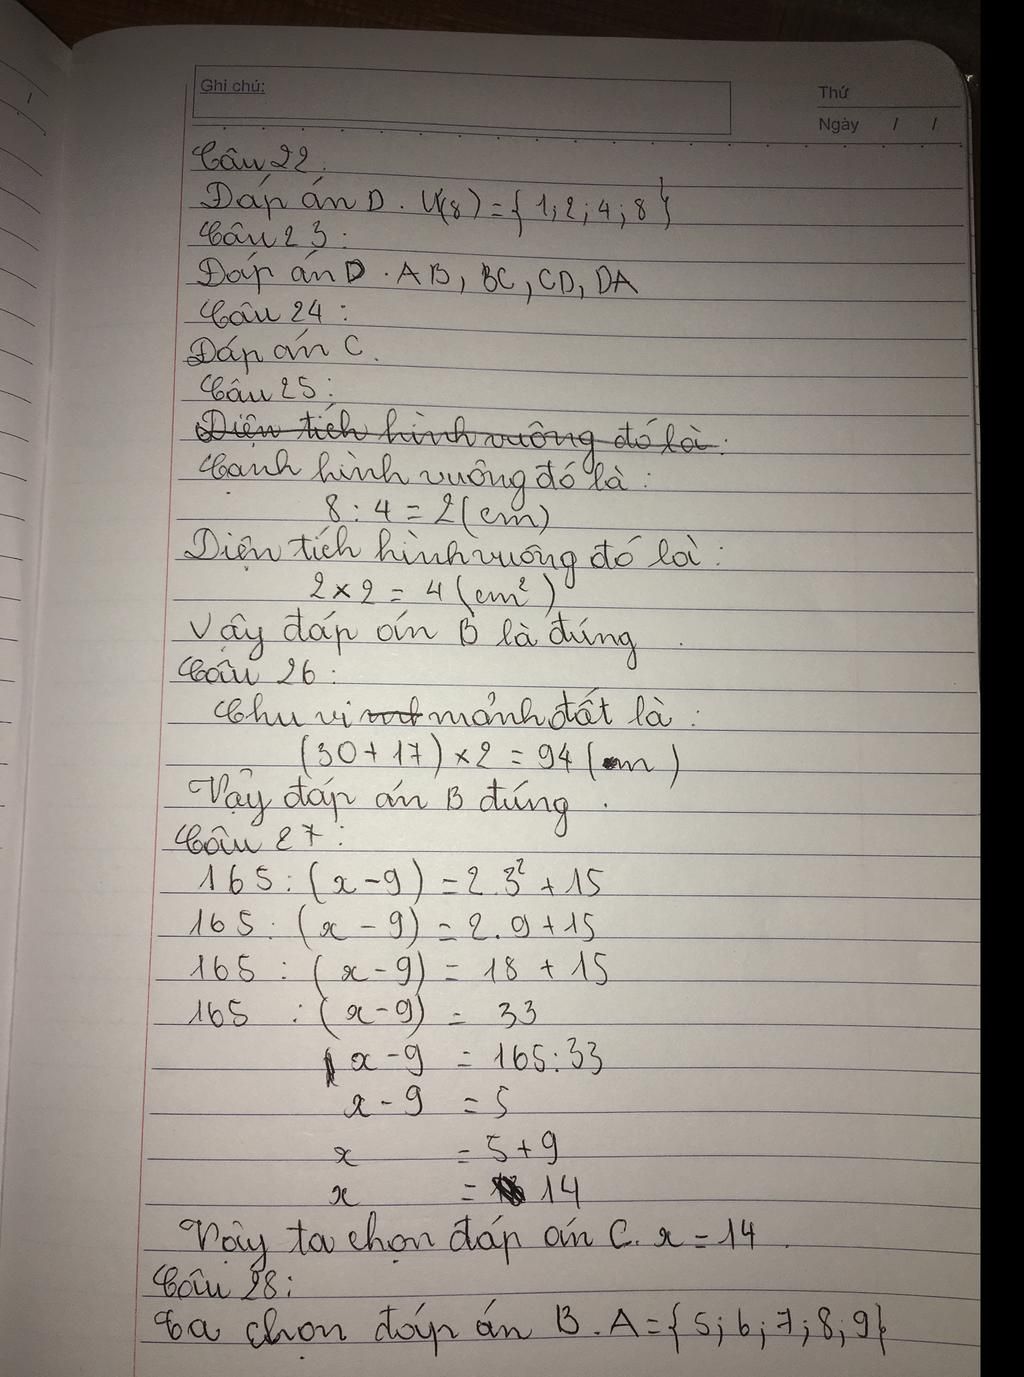 Ghi chú:
Thứ
Ngày / /
Câu 22:
Đáp án D. Ư(8) = { 1; 2; 4; 8 }
Câu 23:
Đáp án D. AB, BC, CD, DA
Câu 24:
Đáp án C.
Câu 25:
Diện tích hình vuông đó là:
Cạnh hình vuông đó là:
8 : 4 = 2 (cm)
Diện tích hình vuông đó là:
2 × 2 = 4 (cm²)
Vậy đáp án B là đúng.
Câu 26:
Chu vi mảnh đất là:
(30 + 17) × 2 = 94 (m)
Vậy đáp án B đúng.
Câu 27:
165 : (x - 9) = 2.3² + 15
165 : (x - 9) = 2.9 + 15
165 : (x - 9) = 18 + 15
165 : (x - 9) = 33
x - 9 = 165 : 33
x - 9 = 5
x = 5 + 9
x = 14
Vậy ta chọn đáp án C. x = 14.
Câu 28:
Ta chọn đáp án B. A = { 5; 6; 7; 8; 9 }